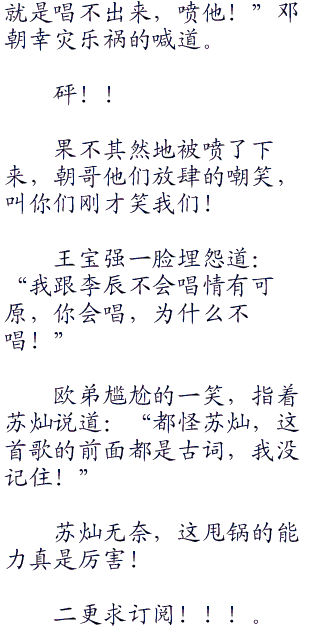 就是唱不出来，喷他！”邓
朝幸灾乐祸的喊道。
砰！！
果不其然地被喷了下
来，朝哥他们放肆的嘲笑，
叫你们刚才笑我们！
王宝强一脸埋怨道：
“我跟李辰不会唱情有可
原，你会唱，为什么不
唱！”
欧弟尴尬的一笑，指着
苏灿说道：“都怪苏灿，这
首歌的前面都是古词，我没
记住！”
苏灿无奈，这甩锅的能
力真是厉害！
二更求订阅！！！。